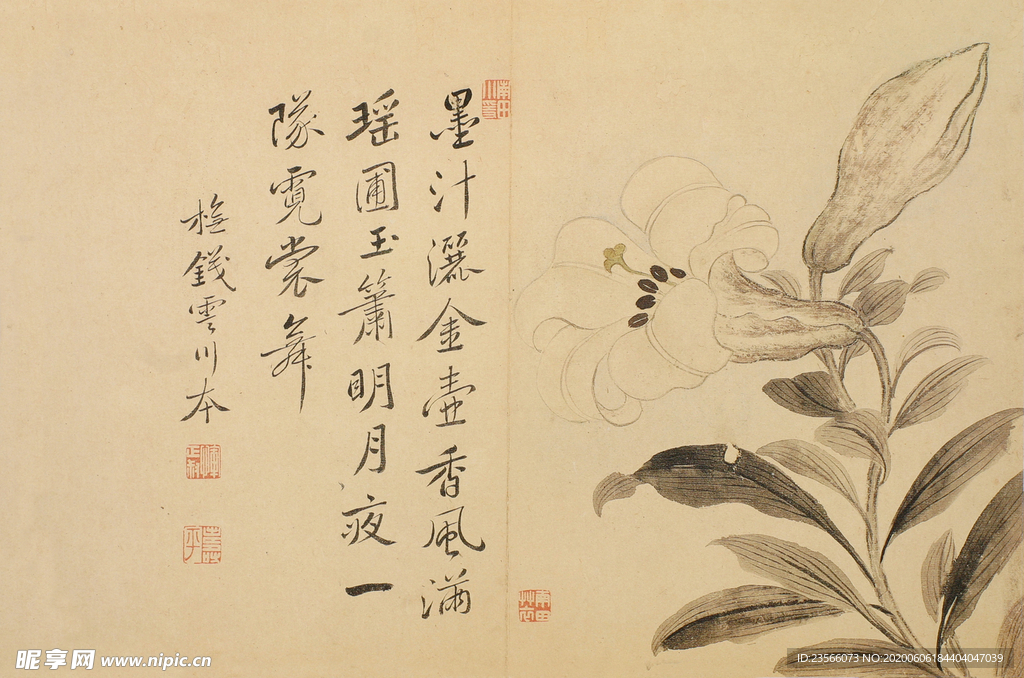 墨汁灑金壺香風滿
瑶圃玉簫明月夜一
隊霓裳舞
橅錢雲川本
昵享网 www.nipic.cn
ID:23566073 NO:20200606184404047039